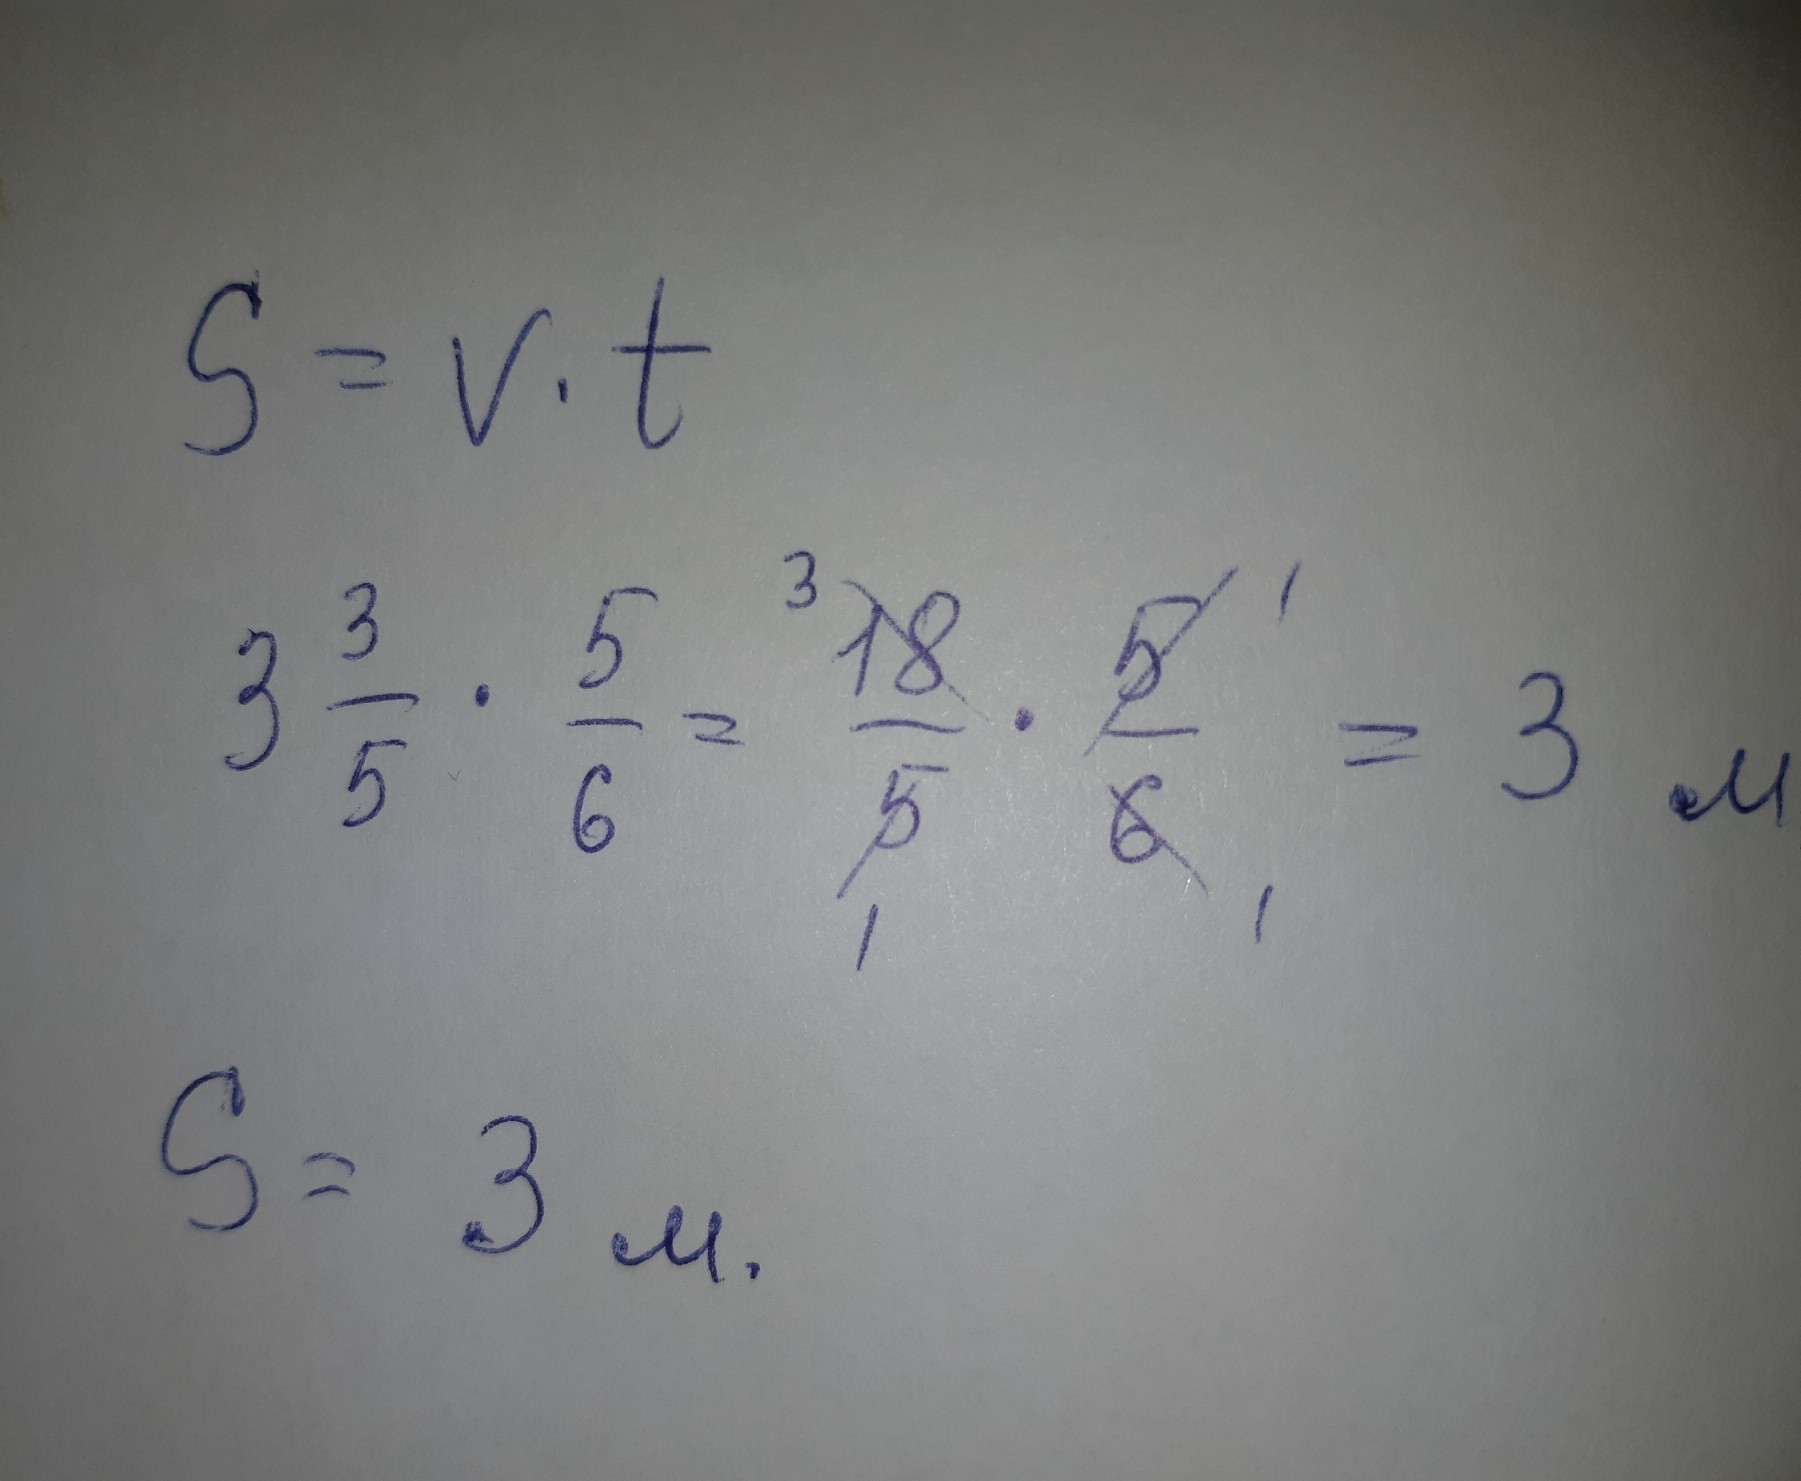 S = v · t
3 3/5 · 5/6 = ³18/5₁ · 5¹/6₁ = 3 м
S = 3 м.